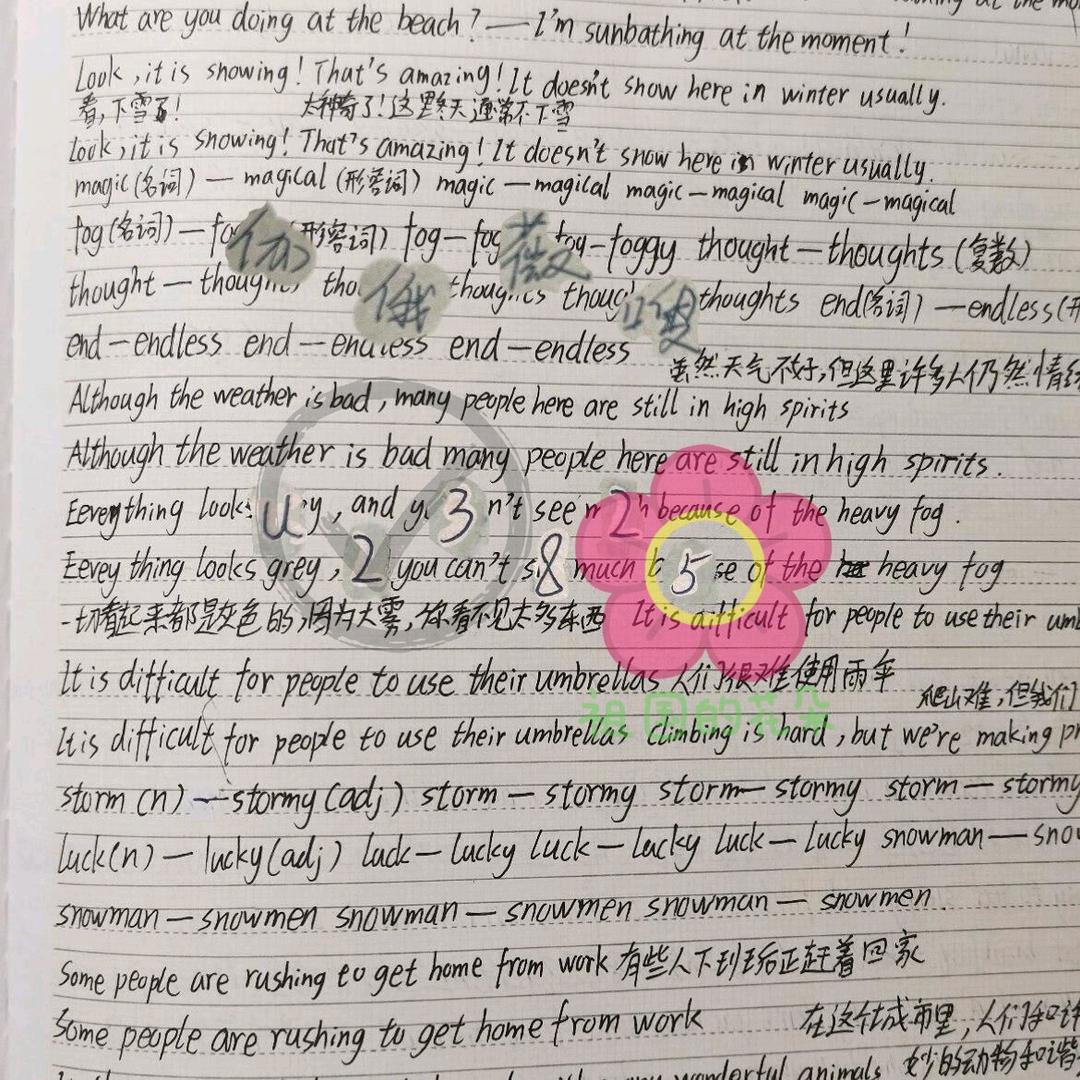 What are you doing at the beach? — I'm sunbathing at the moment!
Look, it is snowing! That's amazing! It doesn't snow here in winter usually.
看,下雪了! 太神奇了!这里冬天通常不下雪
Look, it is snowing! That's amazing! It doesn't snow here in winter usually.
magic(名词) — magical (形容词) magic — magical magic — magical magic — magical
fog(名词) — 形容词) fog — fog — foggy thought — thoughts (复数)
thought — thoughts thoughts thoughts end(名词) — endless(形
end — endless end — endless end — endless
虽然天气不好,但这里许多人仍然情绪
Although the weather is bad, many people here are still in high spirits
Although the weather is bad many people here are still in high spirits.
Everything looks u y, and y 3 n't see m 2 h because of the heavy fog.
Eevey thing looks grey, 2 you can't s 8 much b 5 se of the heavy fog
一切看起来都是灰色的,因为大雾,你看不见太多东西 It is difficult for people to use their um
It is difficult for people to use their umbrellas 人们很难使用雨伞
祖国的花朵
爬山难,但我们
It is difficult for people to use their umbrellas Climbing is hard, but we're making pr
storm (n) — stormy (adj) storm — stormy storm — stormy storm — stormy
luck(n) — lucky(adj) luck — lucky luck — lucky luck — lucky snowman — snow
snowman — snowmen snowman — snowmen snowman — snowmen
Some people are rushing to get home from work 有些人下班后正赶着回家
Some people are rushing to get home from work
在这个城市里,人们和许
wonderful animals 妙的动物和谐